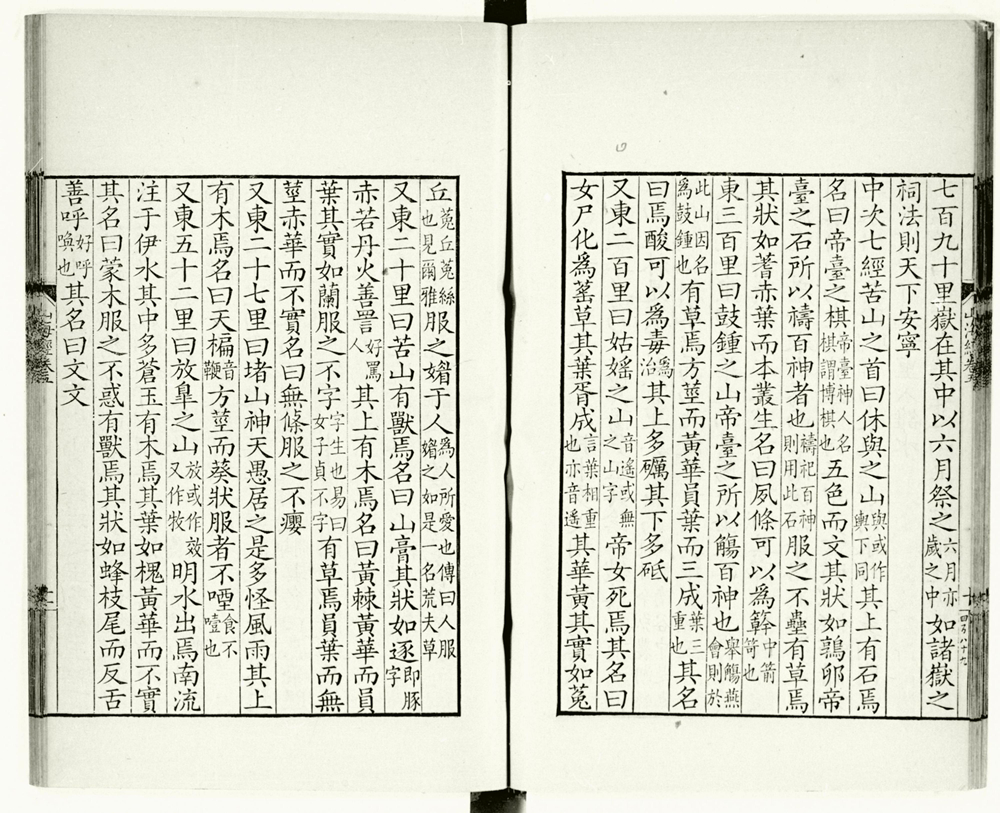 七百九十里嶽在其中以六月祭之六月亦歲之中如諸嶽之
祠法則天下安寧
中次七經苦山之首曰休與之山與或作輿下同其上有石焉
名曰帝臺之棋帝臺神人名棋謂博棋也五色而文其狀如鶉卵帝
臺之石所以禱百神者也禱祀百神則用此石服之不蠱有草焉
其狀如蓍赤葉而本叢生名曰夙條可以為簳中箭笴也
東三百里曰鼓鍾之山帝臺之所以觴百神也舉觴燕會則於
此山因名為鼓鍾也有草焉方莖而黃華員葉而三成葉三重也其名
曰焉酸可以為毒為治其上多礪其下多砥
又東二百里曰姑媱之山音遙或無之山字帝女死焉其名曰
女尸化為䔄草其葉胥成言葉相重也亦音遙其華黃其實如菟
丘菟丘菟絲也見爾雅服之媚于人為人所愛也傳曰人服媚之如是一名荒夫草
又東二十里曰苦山有獸焉名曰山膏其狀如逐即豚字
赤若丹火善詈好罵人其上有木焉名曰黃棘黃華而員
葉其實如蘭服之不字字生也易曰女子貞不字有草焉員葉而無
莖赤華而不實名曰無條服之不癭
又東二十七里曰堵山神天愚居之是多怪風雨其上
有木焉名曰天楄音鞭方莖而葵狀服者不㖶食不噎也
又東五十二里曰放臯之山放或作效又作牧明水出焉南流
注于伊水其中多蒼玉有木焉其葉如槐黃華而不實
其名曰蒙木服之不惑有獸焉其狀如蜂枝尾而反舌
善呼好呼喚也其名曰文文